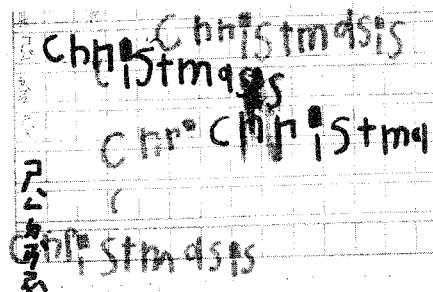 Christmasis
Christmasis
Chr Christma
C
Christmasis